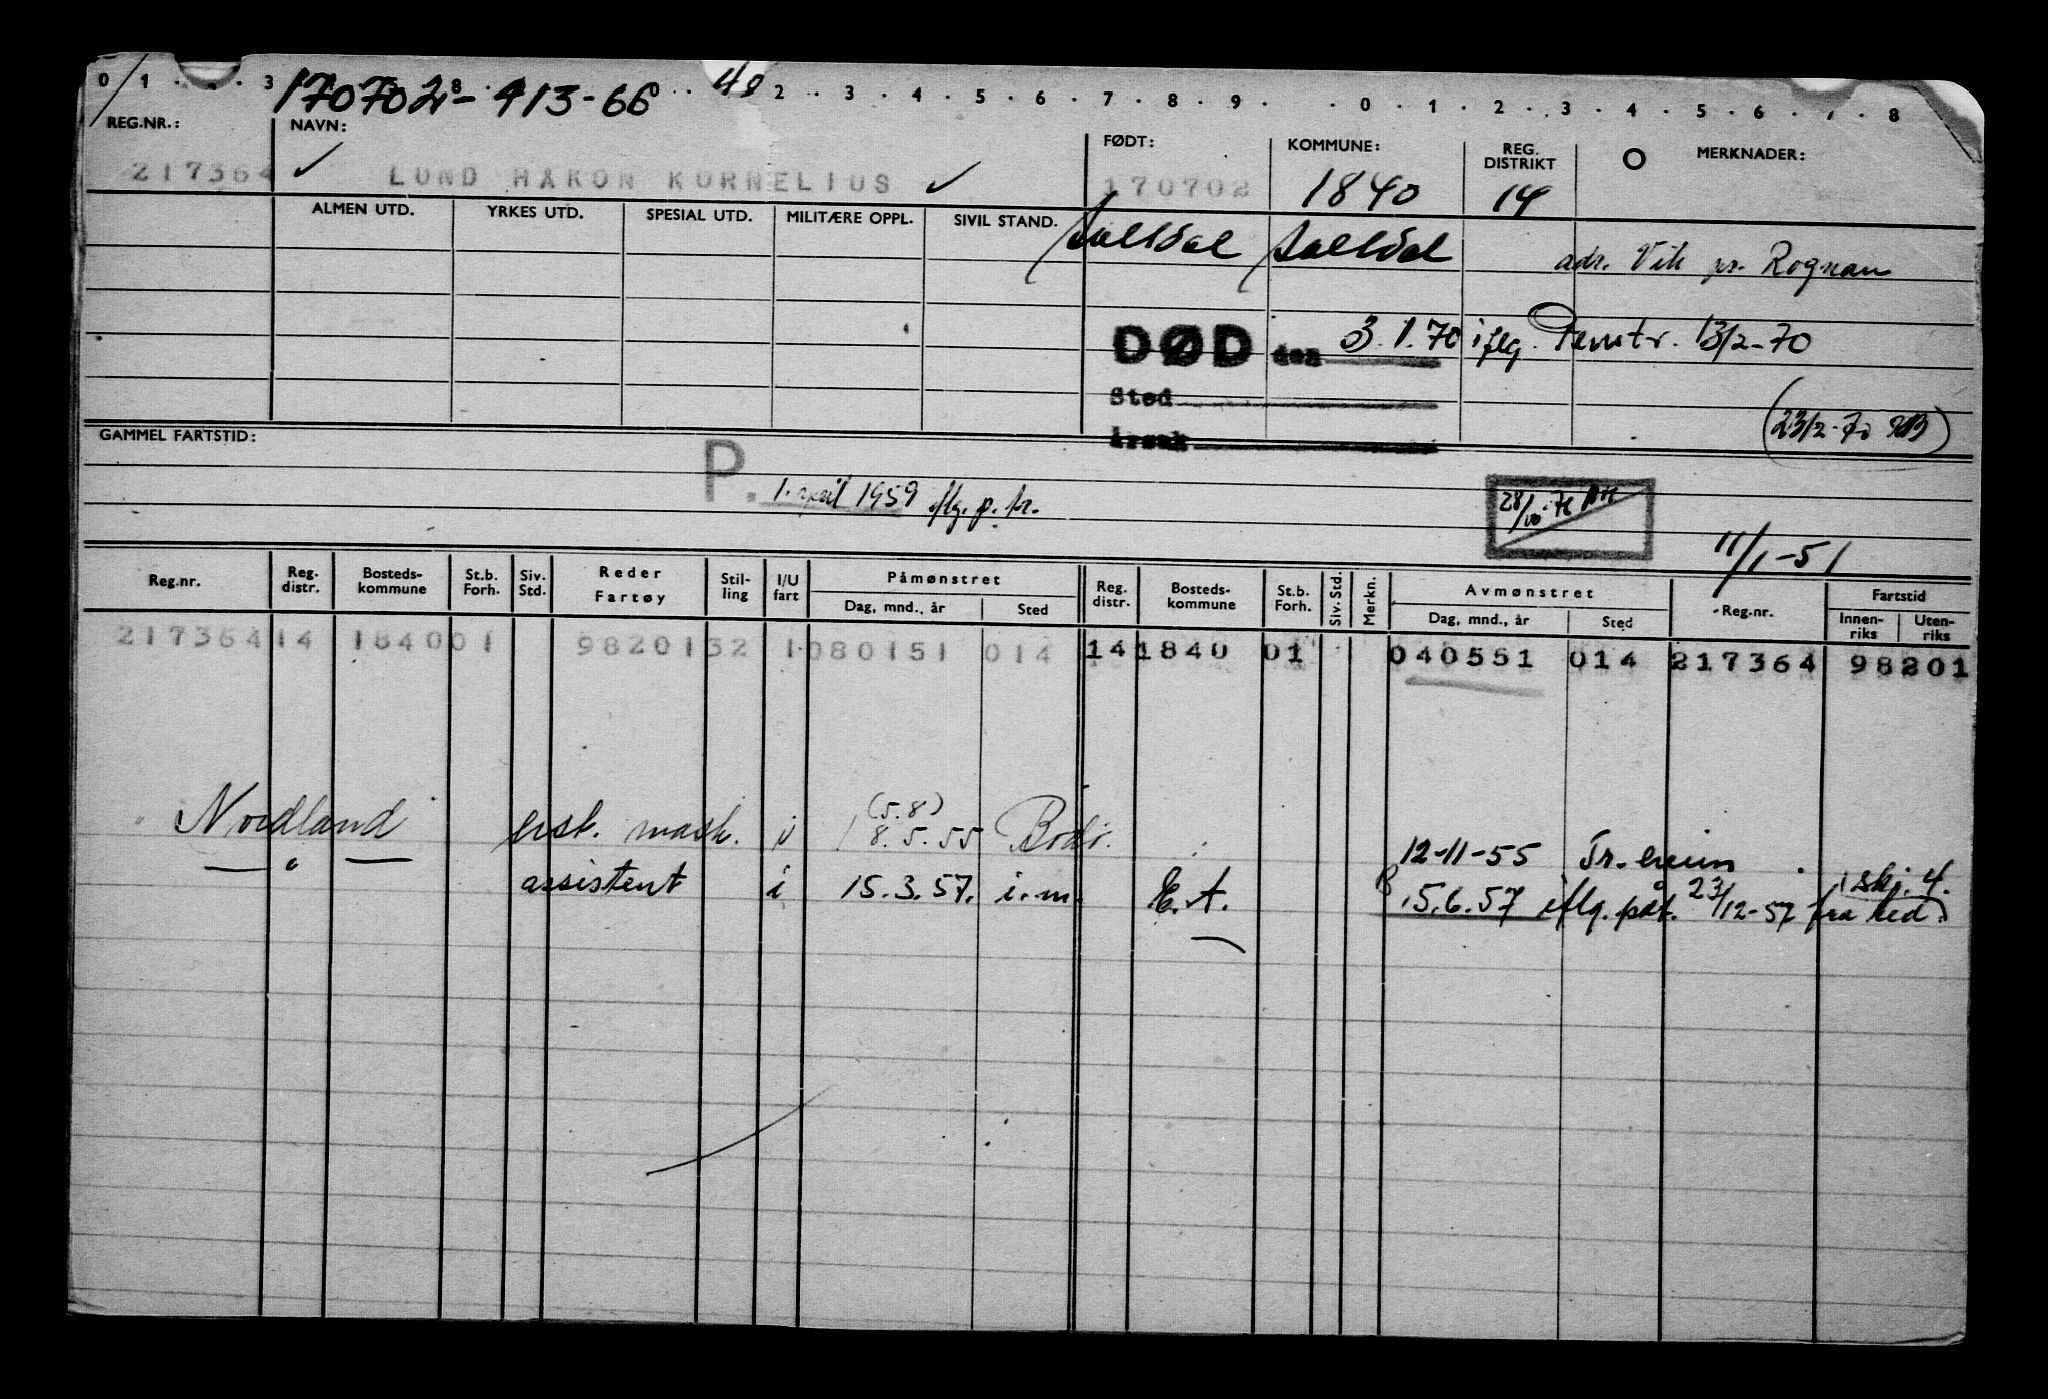 0 1 . . . 3 8 . . . 2 . . 3 . . 4 . . 5 . . 6 . . 7 . . 8 . . 9 . . 0 . . 1 . . 2 . . 3 . . 4 . . 5 . . 6 . . 7 . . 8
170702-413-66 48
REG.NR.: NAVN: FØDT: KOMMUNE: REG. DISTRIKT O MERKNADER:
217364 ✓ LUND HAKON KORNELIUS ✓ 170702 1840 14
ALMEN UTD. YRKES UTD. SPESIAL UTD. MILITÆRE OPPL. SIVIL STAND.
Saltdal Saltdal adr. Vik pr. Rognan
DØD den 3.1.70 iflg. Penstr. 13/2-70
Sted
Årsak
(23/2-70)
GAMMEL FARTSTID:
P. 1. april 1959 iflg. p. tr.
28/10-71
11/1-51
Reg.nr. Reg. distr. Bosteds-kommune St.b. Forh. Siv. Std. Reder Fartøy Stil-ling I/U fart Påmønstret Dag, mnd., år Sted Reg. distr. Bosteds-kommune St.b. Forh. Siv. Std. Merkn. Avmønstret Dag, mnd., år Sted Reg.nr. Fartstid Innen-riks Uten-riks
217364 14 1840 01 98201 32 1 080151 014 14 1840 01 040551 014 217364 98201
Nordland erst. mask. i (5.8) 8.5.55 Bodø. 12-11-55 Tr.heim
— " — assistent i 15.3.57. i.m. E.A. 15.6.57 iflg. påt. 23/12-57 fra red. skj. 4.